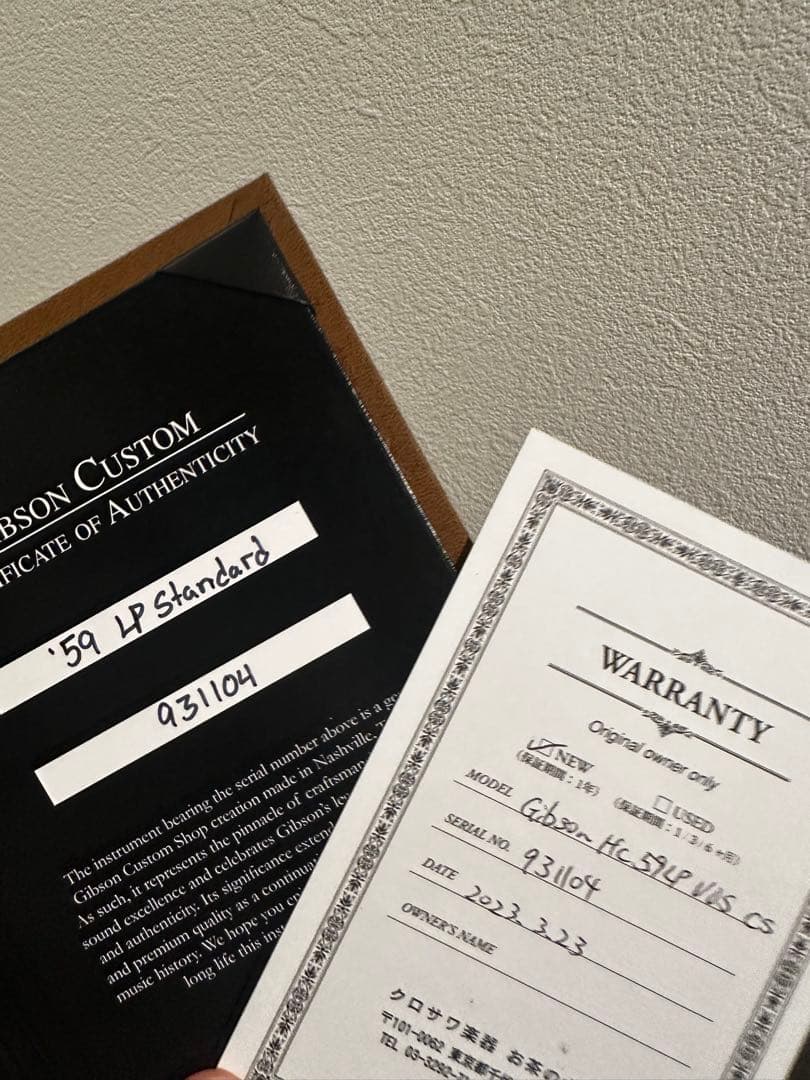 BSON CUSTOM
FICATE OF AUTHENTICITY
'59 LP Standard
931104
The instrument bearing the serial number above is a
Gibson Custom Shop creation made in Nashville,
As such, it represents the pinnacle of
sound excellence and celebrates Gibson's
and authenticity. Its significance
and premium quality as a
music history. We hope you
long life this
WARRANTY
Original owner only
NEW
(保証期間：1年)
USED
(保証期間：1/3/6ヶ月)
MODEL Gibson HC 59 LP VOS CS
SERIAL NO. 931104
DATE 2023.3.23
OWNER'S NAME
クロサワ楽器 お茶の
〒101-0062 東京都千
TEL 03-3292-